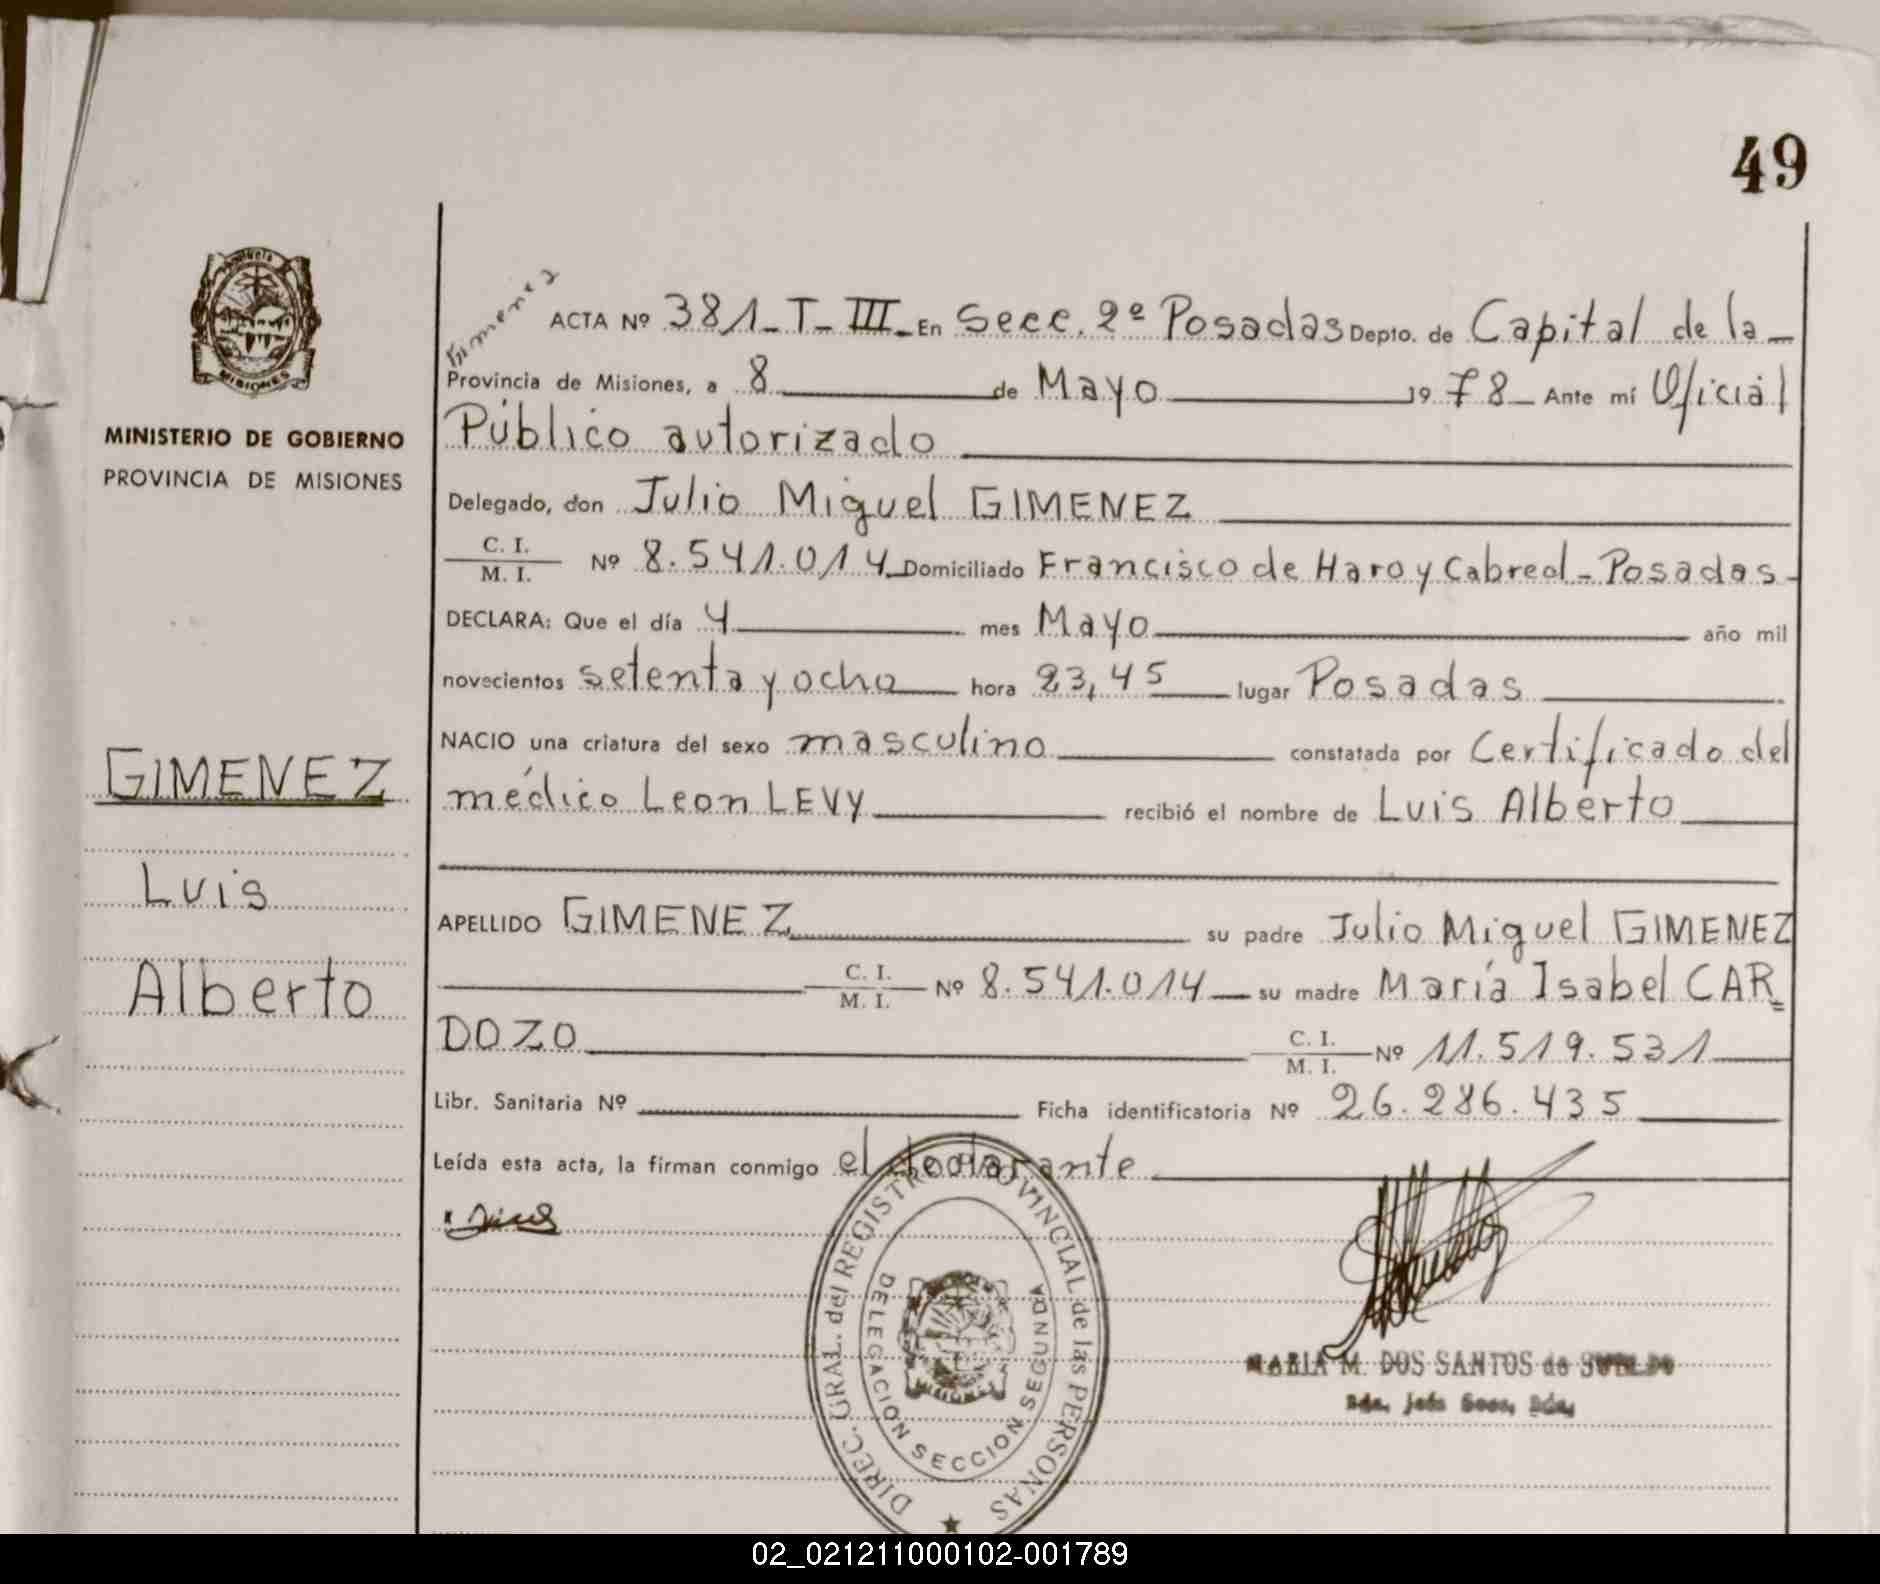 49
Gimenez
ACTA Nº 381-T-III- En Secc. 2º Posadas Depto. de Capital de la-
Provincia de Misiones, a 8 de Mayo 1978- Ante mí Oficial
Público autorizado
Delegado, don Julio Miguel GIMENEZ
C. I.
M. I. Nº 8.541.014 Domiciliado Francisco de Haro y Cabreol-Posadas-
DECLARA: Que el día 4 mes Mayo año mil
novecientos setenta y ocho hora 23,45 lugar Posadas
NACIO una criatura del sexo masculino constatada por Certificado del
médico Leon LEVY recibió el nombre de Luis Alberto
APELLIDO GIMENEZ su padre Julio Miguel GIMENEZ
C. I.
M. I. Nº 8.541.014 su madre María Isabel CAR=
DOZO C. I.
M. I. Nº 11.519.531
Libr. Sanitaria Nº Ficha identificatoria Nº 26.286.435
Leída esta acta, la firman conmigo el declarante
PROVINCIA
MISIONES
MINISTERIO DE GOBIERNO
PROVINCIA DE MISIONES
GIMENEZ
Luis
Alberto
DIREC. GRAL. del REGISTRO PROVINCIAL de las PERSONAS
DELEGACION SECCION SEGUNDA
MISIONES
MARIA M. DOS SANTOS de
02_021211000102-001789